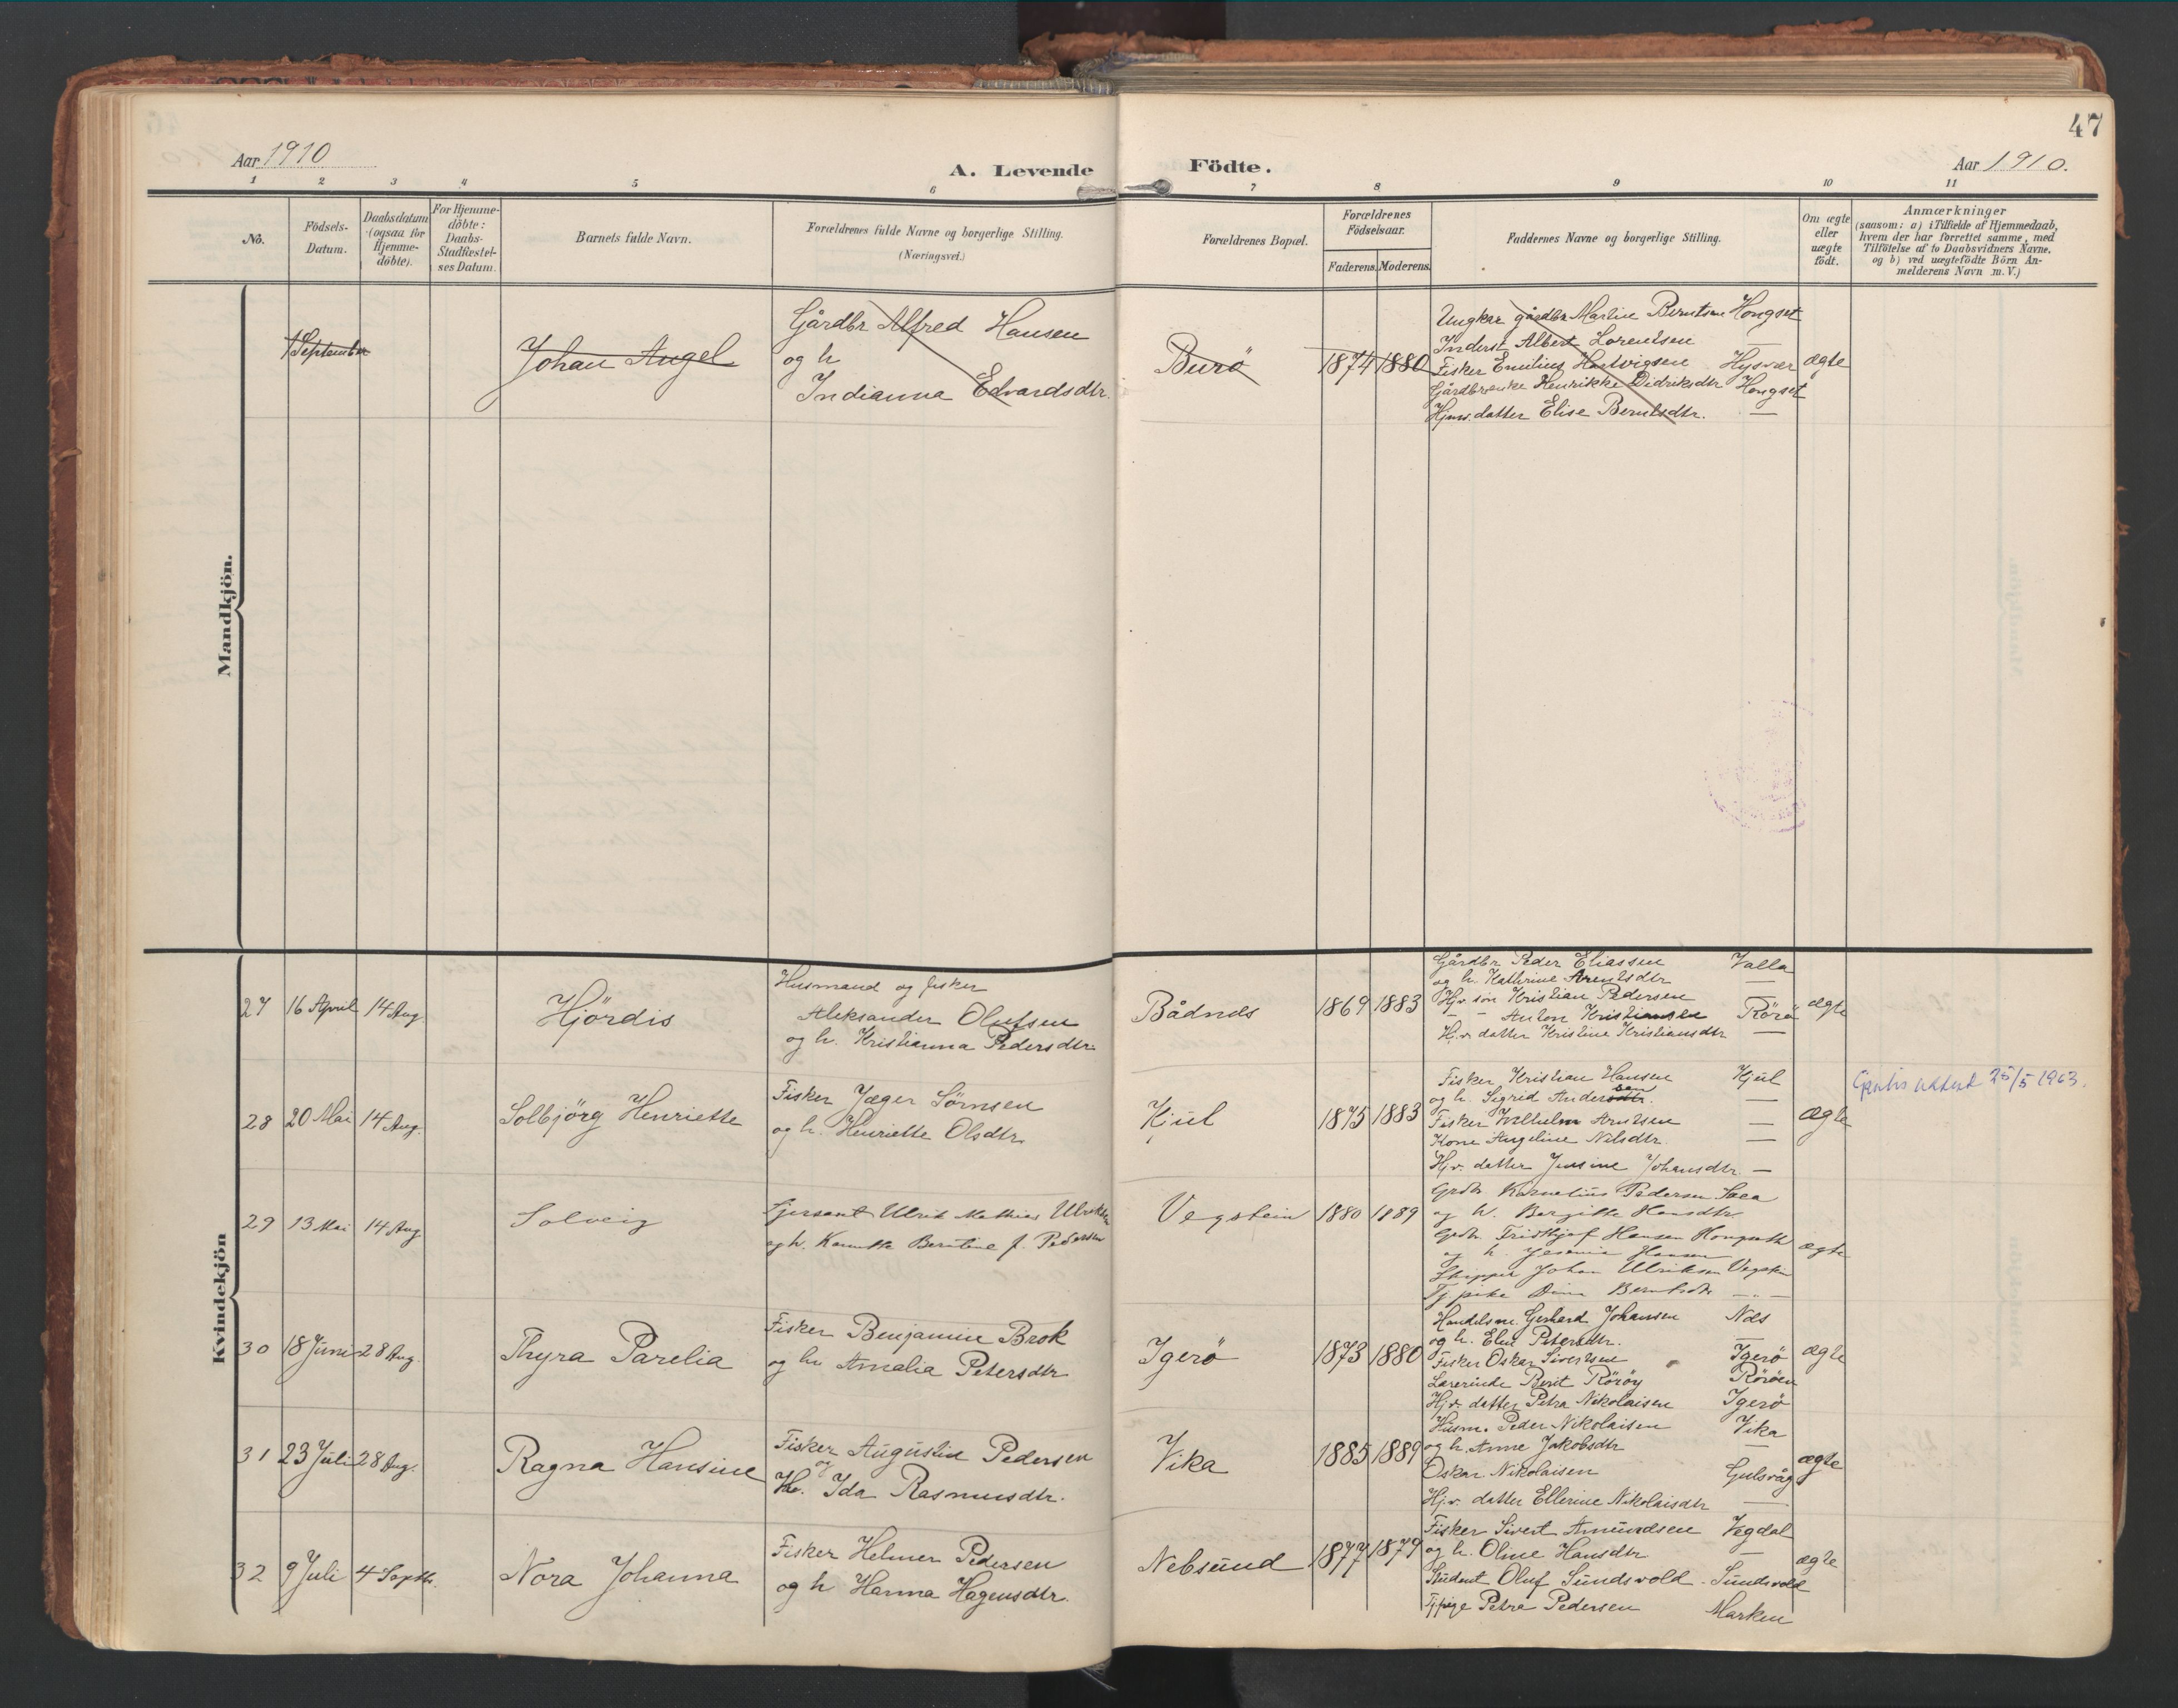 47
Aar 1910
A. Levende Födte.
Aar 1910.
1 2 3 4 5 6 7 8 9 10 11
No.
Födsels-
Datum.
Daabsdatum
(ogsaa for
Hjemme-
döbte).
For Hjemme-
döbte:
Daabs-
Stadfæstel-
ses Datum.
Barnets fulde Navn.
Forældrenes fulde Navne og borgerlige Stilling.
(Næringsvei.)
Forældrenes Bopæl.
Forældrenes
Födselsaar.
Faderens. Moderens.
Faddernes Navne og borgerlige Stilling.
Om ægte
eller
uægte
födt.
Anmærkninger
(saasom: a) i Tilfælde af Hjemmedaab,
hvem der har forrettet samme, med
Tilföielse af to Daabsvidners Navne.
og b) ved uægtefödte Börn An-
melderens Navn m.V.)
Mandkjön.
1 September
Johan Angel
Gårdbr Alfred Hansen
og h
Indianna Edvardsdtr.
Burö
1874 1880
Ungkar gårdbr Martin Berntsen Hongset
Inderst Albert Lorentsen —
Fisker Emilius Hartvigsen Hysvær
Gårdbrenke Henrikke Didriksdtr Hongset
Hjmv. datter Elise Berntsdtr. —
ægte
Kvindekjön
27 16 April 14 Aug.
Hjördis
Husmand og fisker
Aleksander Olufsen
og h. Kristianna Pedersdtr.
Bådnds
1869 1883
Gårdbr Peder Eliassen Valla
og h. Kathrine Arentsdtr —
Hjv. sön Kristian Pedersen —
- - Anton Kristiansen Rörö
Hjv. datter Kristine Kristiansdtr —
ægte
28 20 Mai 14 Aug.
Solbjörg Henriette
Fisker Jæger Sörnsen
og h. Henriette Olsdtr.
Kjul
1875 1883
Fisker Kristian Hansen Kjul
og h. Sigrid Andersdtr. sen —
Fisker Wilhelm Arntsen —
Kone Angeline Nilsdtr. —
Hjv. datter Jensine Johansdtr. —
ægte
25/5 1963.
29 13 Mai 14 Aug
Solveig
Sjersant Ulrik Mathias Ulriksen
og h. Berntine f. Pedersen
Vegstein
1880 1889
Grdbr. Kornelius Pedersen
og h. Bergitte Hansdtr
Grdbr. Fridthjof Hansen
og h. Hansen
Skipper Johan Ulriksen Vegstein
Tj pike Berntsdtr — " —
ægte
30 18 Juni 28 Aug.
Thyra Parelia
Fisker Benjamin Brok
og h. Amalia Petersdtr
Igerö
1873 1880
Handelsm. Gerhard Johansen Nds
og h. Elen Petersdtr. —
Fisker Oskar Sivertsen Igerö
Lærerinde Berit Röröy Röröen
Hjv. datter Petra Nikolaisen Igerö
ægte
31 23 Juli 28 Aug.
Ragna Hansine
Fisker Augustin Pedersen
og
H. Ida Rasmusdtr.
Vika
1885 1889
Husm. Peder Nikolaisen Vika
og h. Anne Jakobsdtr —
Oskar Nikolaisen Gulsvåg
Hjv. datter Ellerine Nikolaisdtr —
ægte
32 9 Juli 4 Septbr.
Nora Johanna
Fisker Helmer Pedersen
og h Hanna Hagensdtr.
Nebsund
1877 1879
Fisker Sivert Amundsen Vegdal
og h. Oline Hansdtr —
Student Oluf Sundsvold - Sundsvold
Tjpige Petra Pedersen Marken
ægte